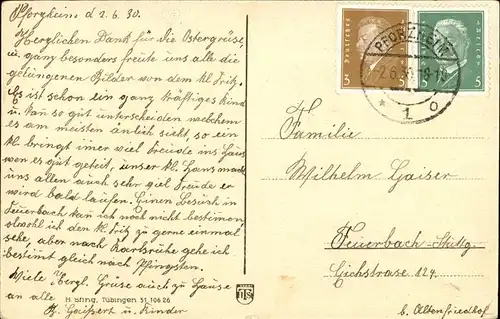 Pforzheim d 2.6.30.
Herzlichen Dank für die Ostergrüse,
u. ganz besonders freute uns alle die
gelungenen Bilder von dem kl. Fritz.
Es ist schon ein ganz kräftiges Kind
u. kan so gut unterscheiden welchem
es am meisten änlich sieht, so ein
kl. bringt imer viel Freude ins Haus
wen es gut geteit, unser kl. Hans macht
uns allen auch sehr viel Freude er
wird bald laufen. Einen Besuch in
Feuerbach kan ich noch nicht bestimen,
obwohl ich den kl. Fritz zu gerne einmal
sehe, aber nach Karlsruhe gehe ich
bestimt gleich nach Pfingsten.
Viele Herzl. Grüse auch zu Hause
an alle
H. Sting, Tübingen 51 106 26
u. Kinder
PFORZHEIM
2.6.30
1
3
5
Familie
Wilhelm Gaiser
Feuerbach-Stuttg.
Eichstrase 124.
b. Altenfriedhof